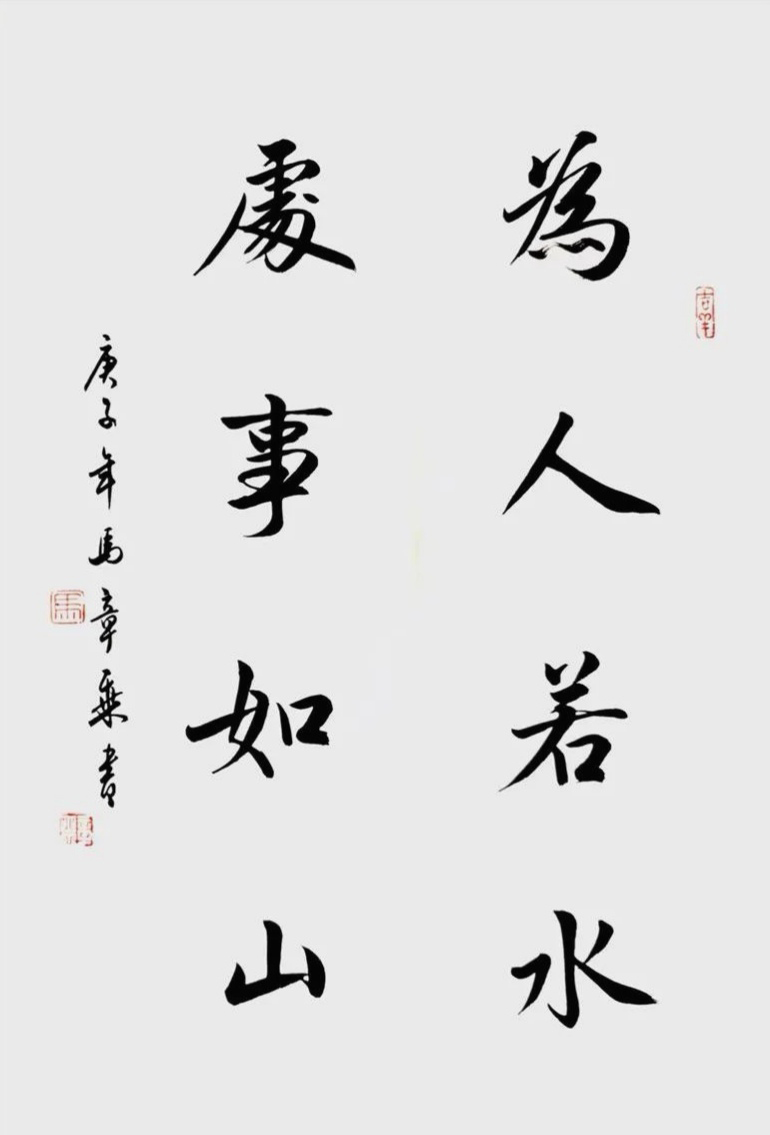 為人若水
處事如山
庚子年馬章乘書